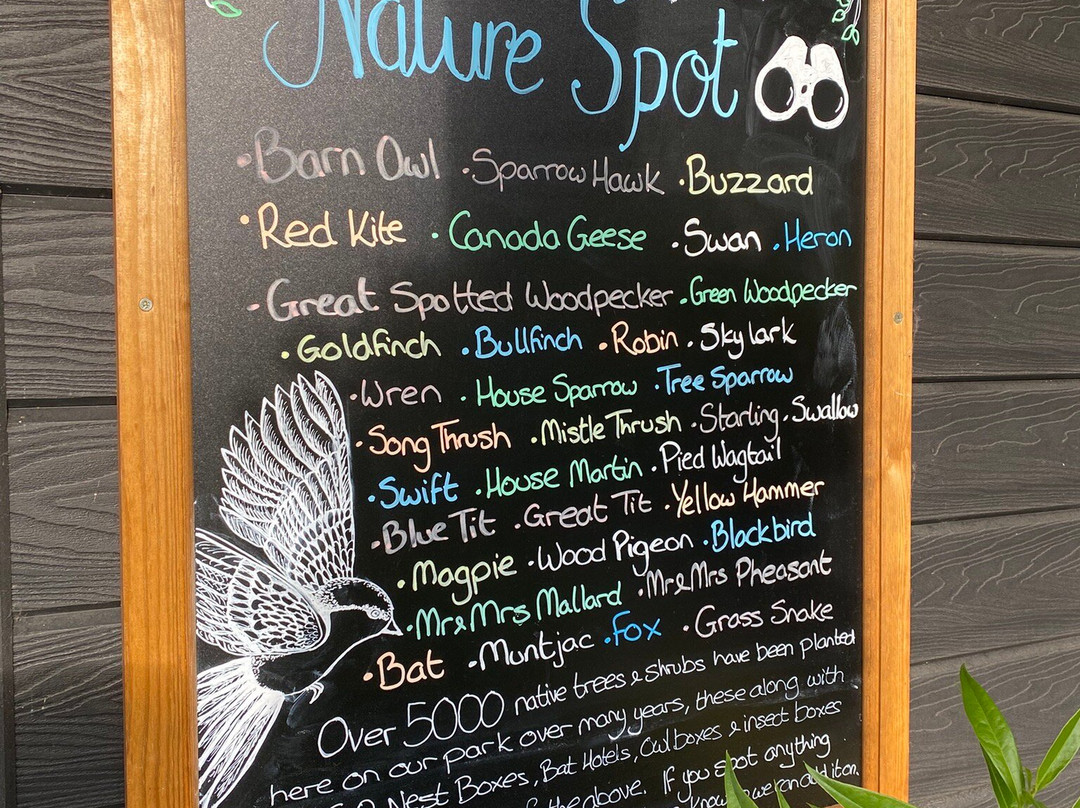 Nature Spot
• Barn Owl • Sparrow Hawk • Buzzard
• Red Kite • Canada Geese • Swan • Heron
• Great Spotted Woodpecker • Green Woodpecker
• Goldfinch • Bullfinch • Robin • Skylark
• Wren • House Sparrow • Tree Sparrow
• Song Thrush • Mistle Thrush • Starling • Swallow
• Swift • House Martin • Pied Wagtail
• Blue Tit • Great Tit • Yellow Hammer
• Magpie • Wood Pigeon • Blackbird
• Mr & Mrs Mallard • Mr & Mrs Pheasant
• Bat • Muntjac • Fox • Grass Snake
Over 5000 native trees & shrubs have been planted
here on our park over many years, these along with
Nest Boxes, Bat Hotels, Owl boxes & insect boxes
the above. If you spot anything
know we can add it on.